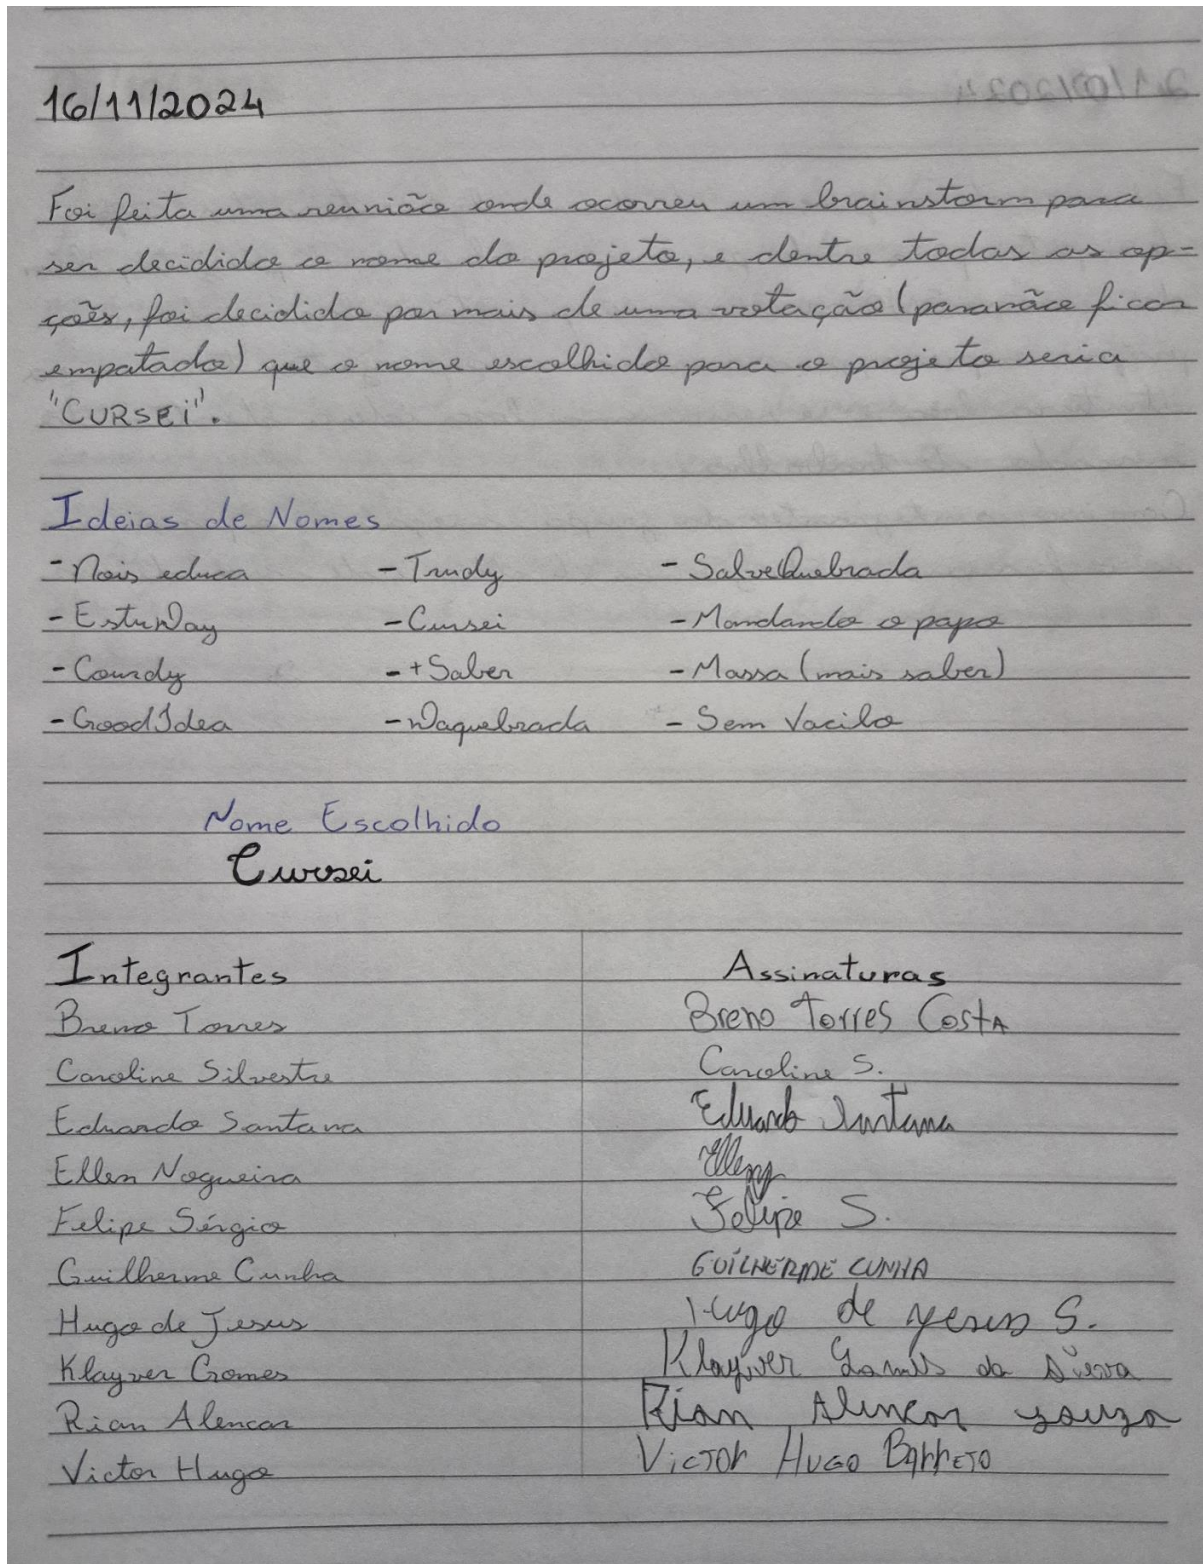 16/11/2024
Foi feita uma reunião onde ocorreu um brainstorm para
ser decidido o nome do projeto, e dentre todas as op-
ções, foi decidido por mais de uma votação (para não ficar
empatado) que o nome escolhido para o projeto seria
"CURSEi".
Ideias de Nomes
- Nois educa - Trudy - SalveQuebrada
- EstuDay - Cursei - Mandando o papo
- Courdy - +Saber - Massa (mais saber)
- GoodIdea - Daquebrada - Sem Vacilo
Nome Escolhido
Cursei
Integrantes Assinaturas
Breno Torres Breno Torres Costa
Caroline Silvestre Caroline S.
Eduardo Santana Eduardo Santana
Ellen Nogueira Ellen
Felipe Sérgio Felipe S.
Guilherme Cunha GUILHERME CUNHA
Hugo de Jesus Hugo de Jesus S.
Klayver Gomes Klayver Gomes da Silva
Rian Alencar Rian Alencar Souza
Victor Hugo Victor Hugo Barreto